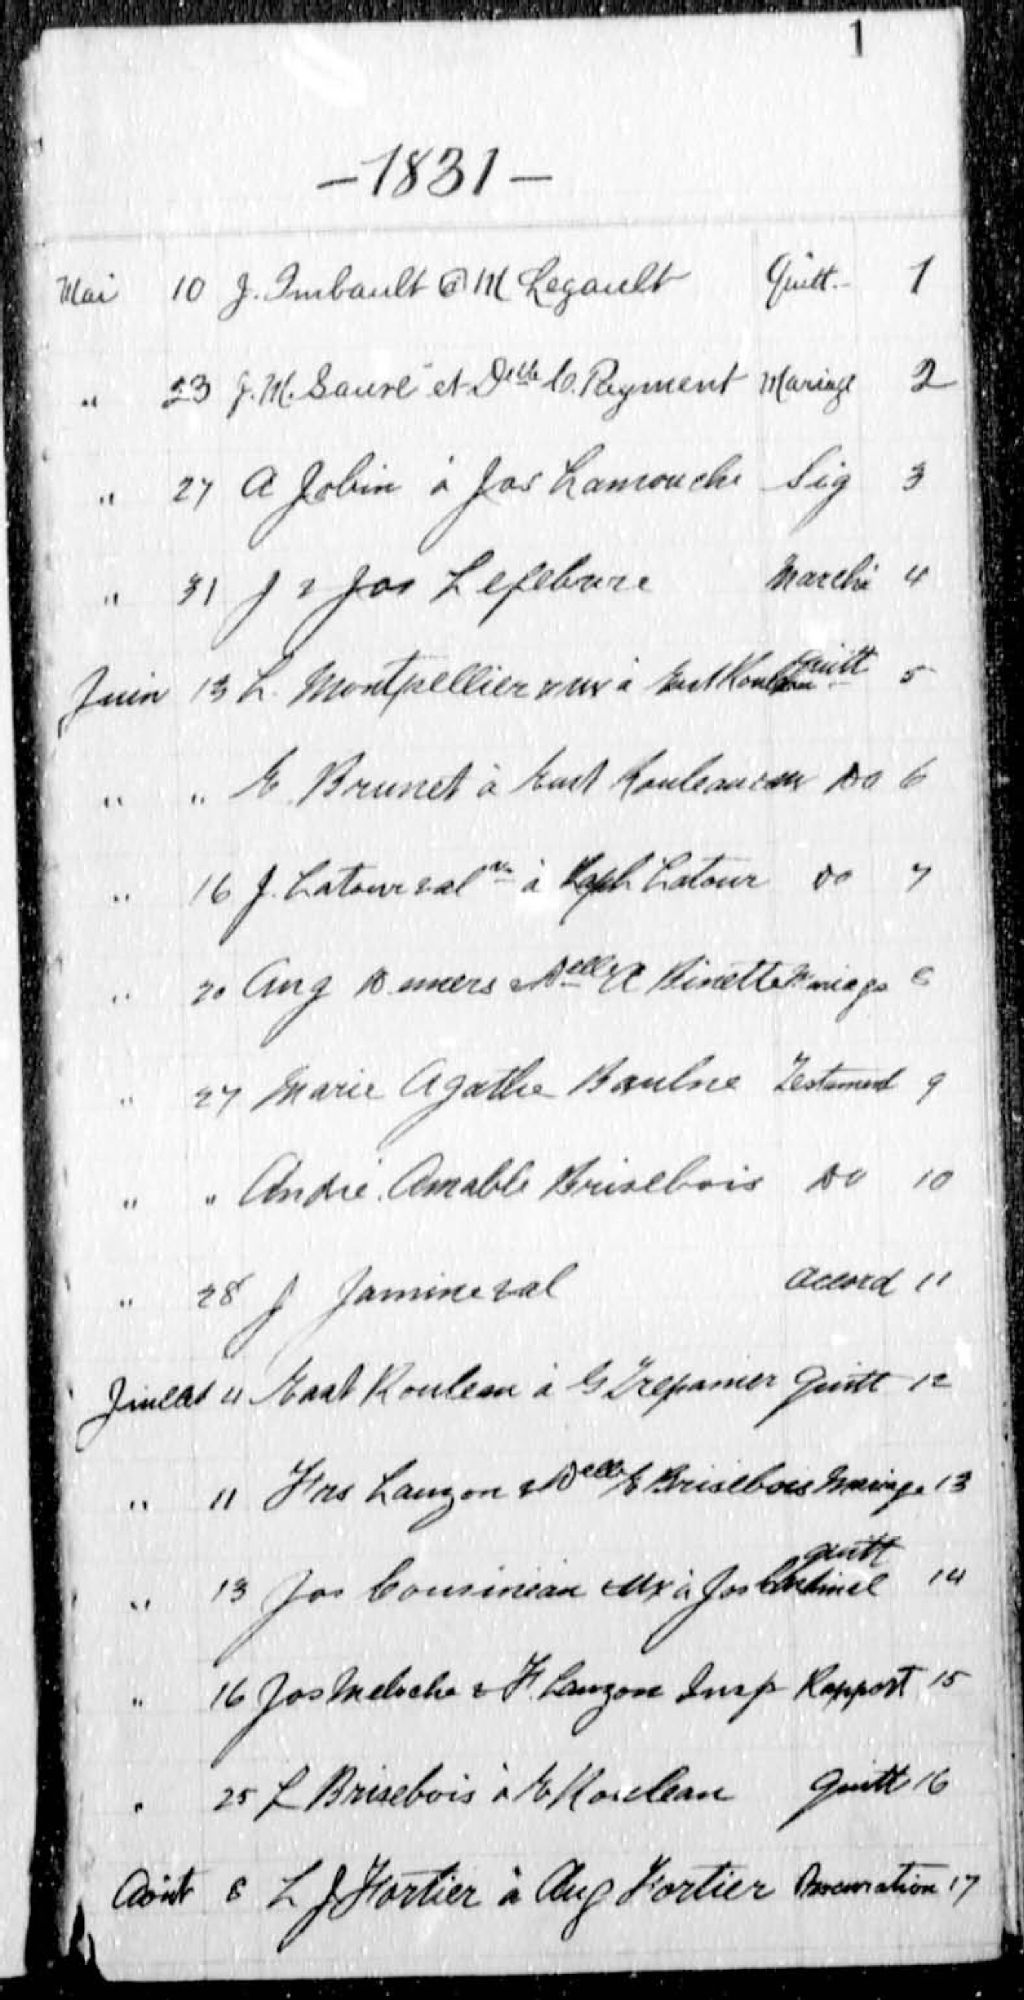 1
— 1831 —
Mai 10 J. Imbault @ M Legault Quitt. 1
" 23 J. M. Sauvé et Delle C. Payment Mariage 2
" 27 A Jobin à Jos Lamouche Sig 3
" 31 J & Jos Lefebvre Marché 4
Juin 13 L. Montpellier & ux à Quitt 5
" " E. Brunet à Eust Rouleau & ux Do 6
" 16 J. Latour & al à Latour Do 7
" 20 Aug & Delle A Binette Mariage 8
" 27 Marie Agathe Baulne Testament 9
" " André Amable Brisebois Do 10
" 28 J Jamine & al Accord 11
4 Rouleau à G Trepanier Quitt 12
" 11 Frs Lauzon & Delle E Brisebois Mariage 13
" 13 Jos Cousineau & ux à Jos Cardinal Quitt 14
" 16 Jos Meloche & F. Lauzon Insp Rapport 15
" 25 L Brisebois à E Rouleau Quitt 16
Août 8 L J Fortier à Aug Fortier Procuration 17